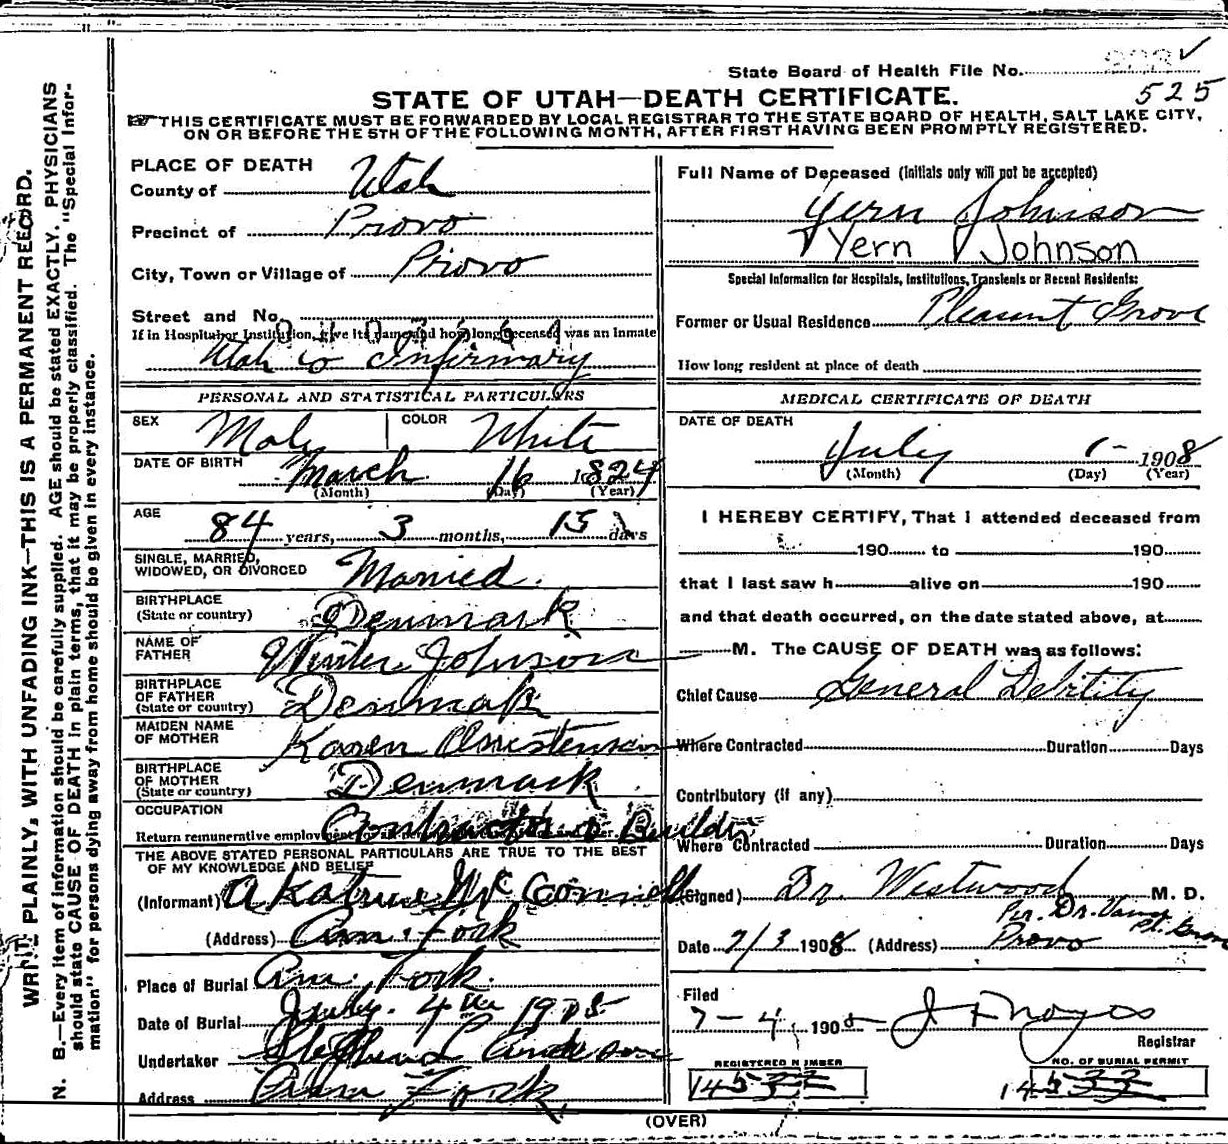 State Board of Health File No.
525
STATE OF UTAH—DEATH CERTIFICATE.
THIS CERTIFICATE MUST BE FORWARDED BY LOCAL REGISTRAR TO THE STATE BOARD OF HEALTH, SALT LAKE CITY,
ON OR BEFORE THE 5TH OF THE FOLLOWING MONTH, AFTER FIRST HAVING BEEN PROMPTLY REGISTERED.
WRITE PLAINLY, WITH UNFADING INK—THIS IS A PERMANENT RECORD.
N. B.—Every item of information should be carefully supplied. AGE should be stated EXACTLY. PHYSICIANS
should state CAUSE OF DEATH in plain terms, that it may be properly classified. The "Special Infor-
mation" for persons dying away from home should be given in every instance.
PLACE OF DEATH
County of Utah
Precinct of Provo
City, Town or Village of Provo
Street and No.
If in Hospital or Institution, give its name and how long deceased was an inmate
Utah co Infirmary
PERSONAL AND STATISTICAL PARTICULARS
SEX Male COLOR White
DATE OF BIRTH March 16 1824
(Month) (Day) (Year)
AGE
84 years, 3 months, 15 days
SINGLE, MARRIED,
WIDOWED, OR DIVORCED Married.
BIRTHPLACE
(State or country) Denmark
NAME OF
FATHER Johnson
BIRTHPLACE
OF FATHER
(State or country) Denmark
MAIDEN NAME
OF MOTHER Karen
BIRTHPLACE
OF MOTHER
(State or country) Denmark
OCCUPATION
Return remunerative employment Contractor & Builder
THE ABOVE STATED PERSONAL PARTICULARS ARE TRUE TO THE BEST
OF MY KNOWLEDGE AND BELIEF
(Informant) A Katrine McConnell
(Address) Am. Fork
Place of Burial Am. Fork.
Date of Burial July. 4th 1908
Undertaker Anderson
Address Am Fork
Full Name of Deceased (Initials only will not be accepted)
Yern Johnson
Yern Johnson
Special Information for Hospitals, Institutions, Transients or Recent Residents:
Former or Usual Residence Pleasant Grove
How long resident at place of death
MEDICAL CERTIFICATE OF DEATH
DATE OF DEATH
July 1- 1908
(Month) (Day) (Year)
I HEREBY CERTIFY, That I attended deceased from
190 to 190
that I last saw h alive on 190
and that death occurred, on the date stated above, at
M. The CAUSE OF DEATH was as follows:
Chief Cause General Debility
Where Contracted Duration Days
Contributory (if any)
Where Contracted Duration Days
(Signed) Dr. Westwood M. D.
Per. Dr.
Date 7/3 1908 (Address) Provo
Filed
7-4, 1908 J F Noyes
Registrar
REGISTERED NUMBER
NO. OF BURIAL PERMIT
(OVER)